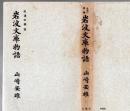 岩波文庫物語
山崎安雄
岩波文庫物語
山崎安雄